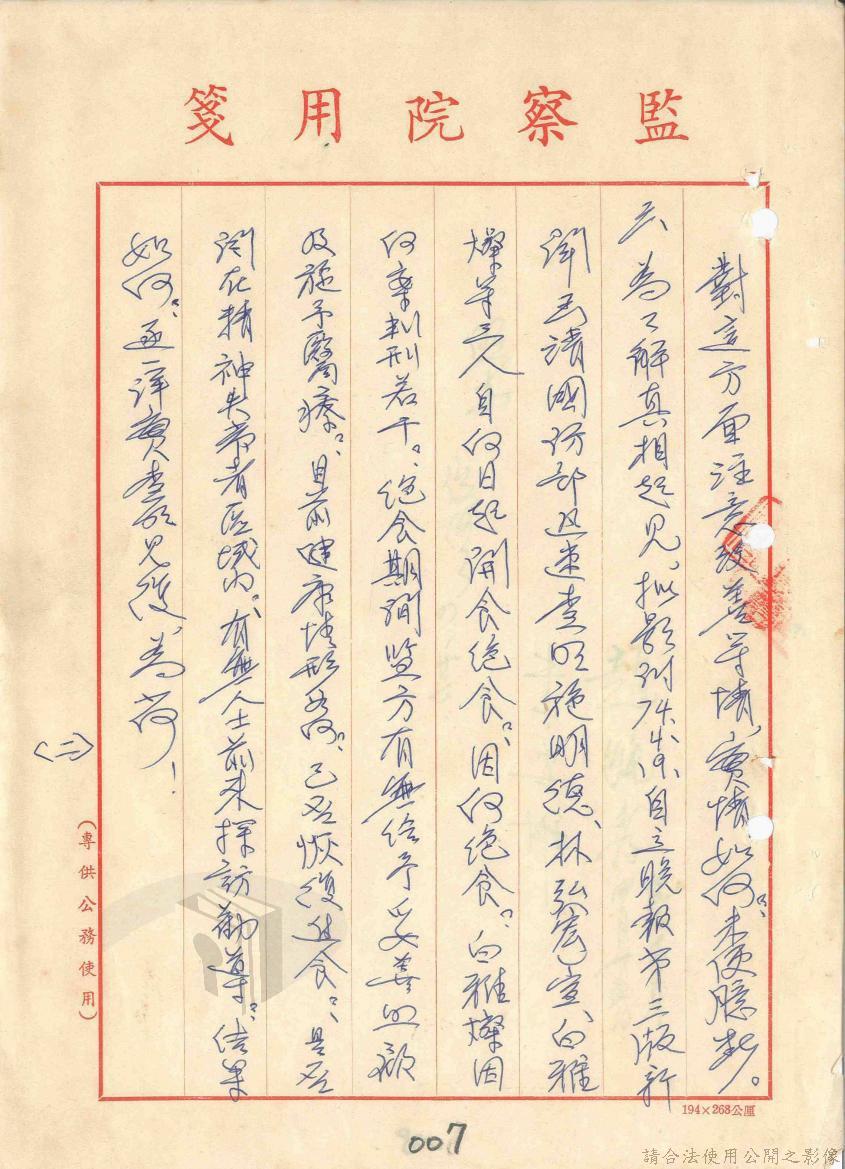 監察院用箋
對這方面注意改善等情,實情如何?未便臆斷。
三、為了解真相起見,擬影附 自立晚報第三版新
聞函請國防部迅速查明施明德、林弘宣、白雅
燦等三人自何日起開始絕食?因何絕食?白雅燦因
何案判刑若干?絕食期間監方有無給予妥善照顧
及施予醫療?目前健康情形如何?已否恢復進食?是否
關在精神失常者區域內?有無人士前來探訪勸導?結果
如何?逐一詳實查明見復為荷!
(二)
(專供公務使用)
194×268公厘
007
請合法使用公開之影像